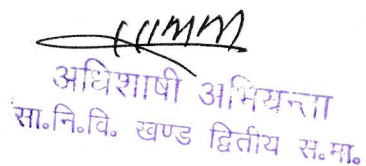 अधिशाषी अभियन्ता
सा.नि.वि. खण्ड द्वितीय स.मा.